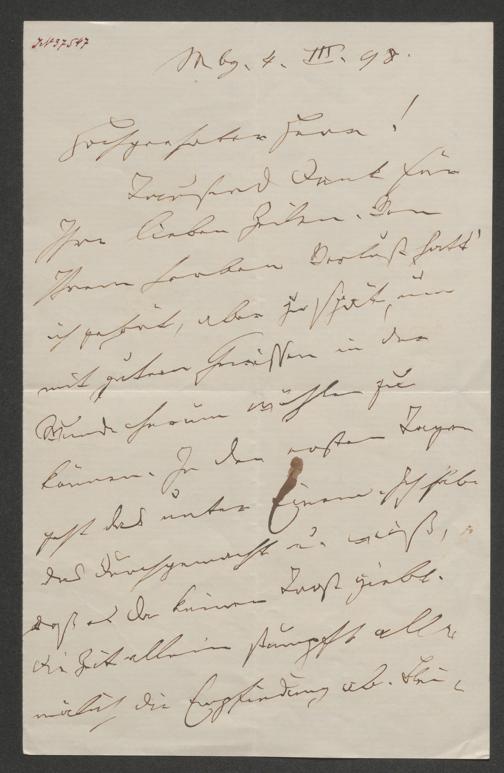 J.N. 37547
Mbg. 4. III. 98.
Hochgeehrter Herr!
Tausend Dank für
Ihre lieben Zeilen. Von
Ihrem herben Verlust hatt'
ich gehört, aber zu spät, um
mit gutem Gewissen in der
Wunde herum wühlen zu
können. In den ersten Tagen
geht das unter Einem. Ich habe
das durchgemacht u. weiß,
daß es da keinen Trost giebt.
die Zeit allein stumpft all
mälich die Empfindung ab.